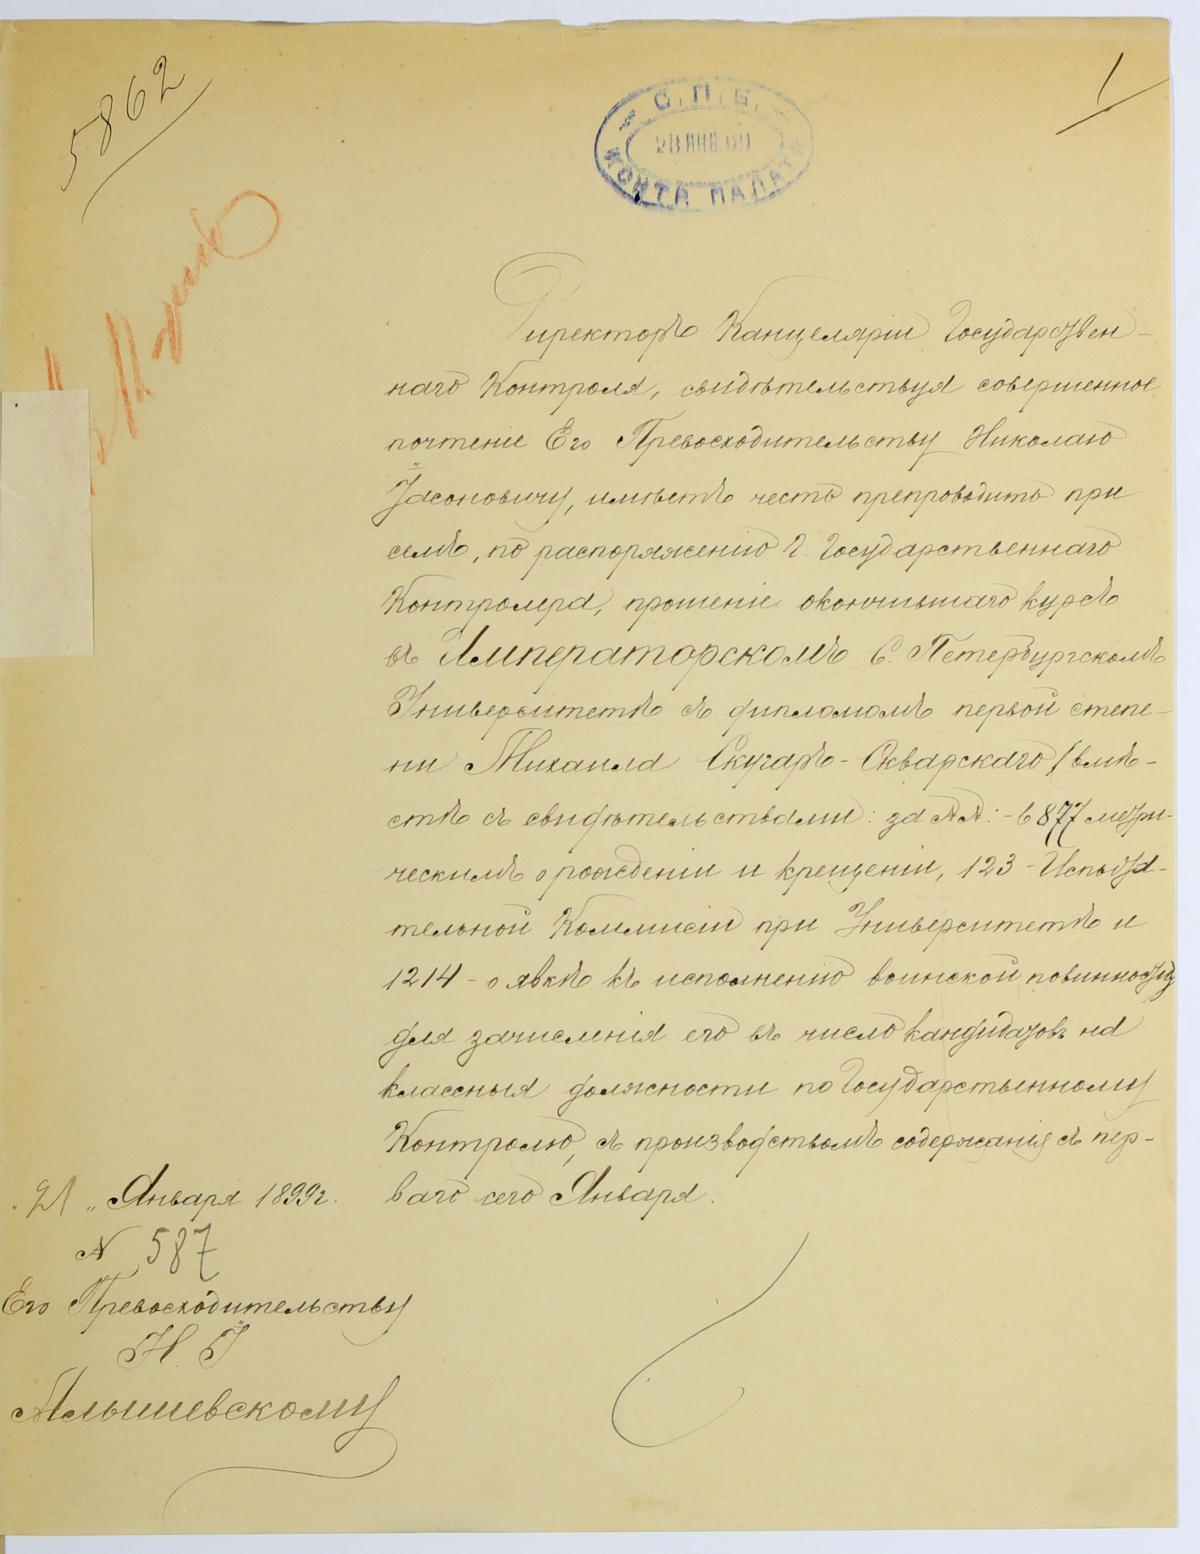 5862
1
С. П. Б.
КОНТР. ПАЛАТА
Директоръ Канцеляріи Государствен-
наго Контроля, свидѣтельствуя совершенное
почтеніе Его Превосходительству Николаю
Іасоновичу, имѣетъ честь препроводить при
семъ, по распоряженію Г. Государственнаго
Контролера, прошеніе окончившаго курсъ
въ Императорскомъ С. Петербургскомъ
Университетѣ съ дипломомъ первой степе-
ни Михаила Скугаръ-Скварскаго, вмѣ-
стѣ съ свидѣтельствами: за №№: - 6877 метри-
ческимъ о рожденіи и крещеніи, 123 - Испыта-
тельной Коммисіи при Университетѣ и
1214 - о явкѣ къ исполненію воинской повинности
для зачисленія его въ число кандидатовъ на
классныя должности по Государственному
Контролю, съ производствомъ содержанія съ пер-
ваго сего Января.
21 " Января 1899 г.
№ 587
Его Превосходительству
Н. І.